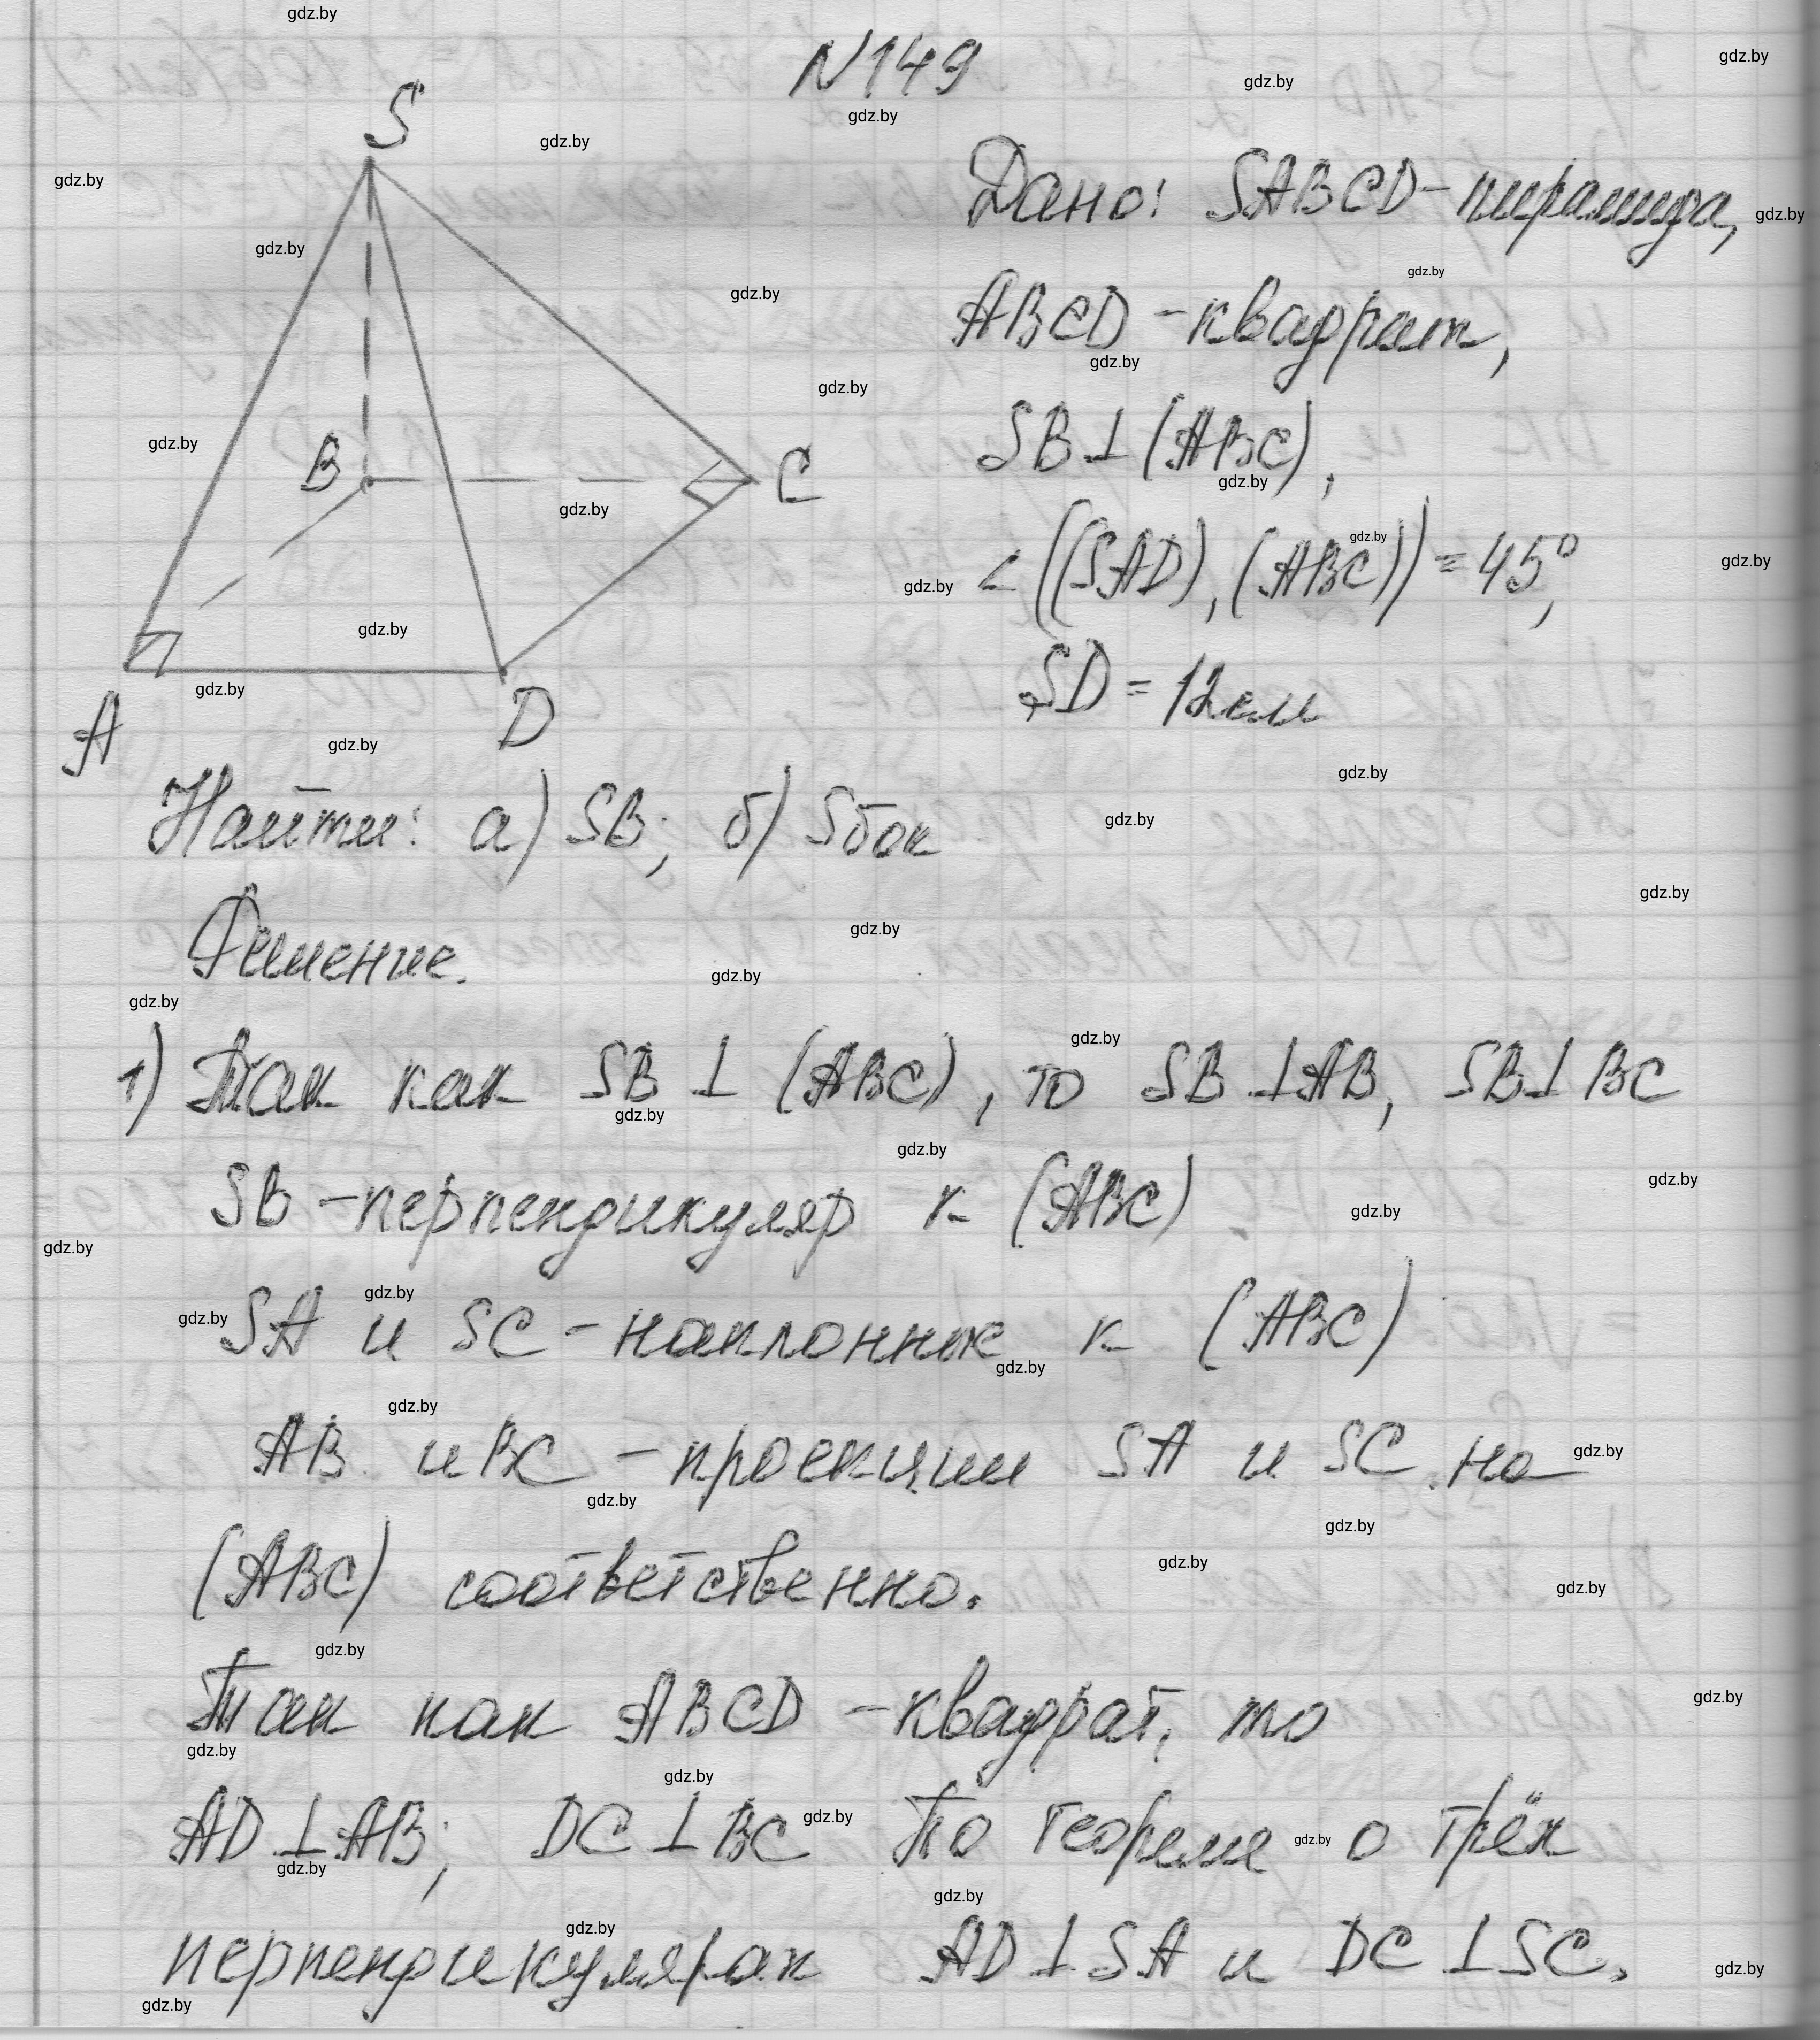 N149
S
B
C
A
D
Дано: SABCD-пирамида,
ABCD-квадрат,
SB⊥(ABC),
∠((SAD),(ABC))=45°,
SD=12см
Найти: а) SB; б) Sбок
Решение.
1) Так как SB⊥(ABC), то SB⊥AB, SB⊥BC
SB-перпендикуляр к (ABC)
SA и SC-наклонные к (ABC)
AB и BC-проекции SA и SC на
(ABC) соответственно.
Так как ABCD-квадрат, то
AD⊥AB; DC⊥BC По теореме о трёх
перпендикулярах AD⊥SA и DC⊥SC.
gdz.by